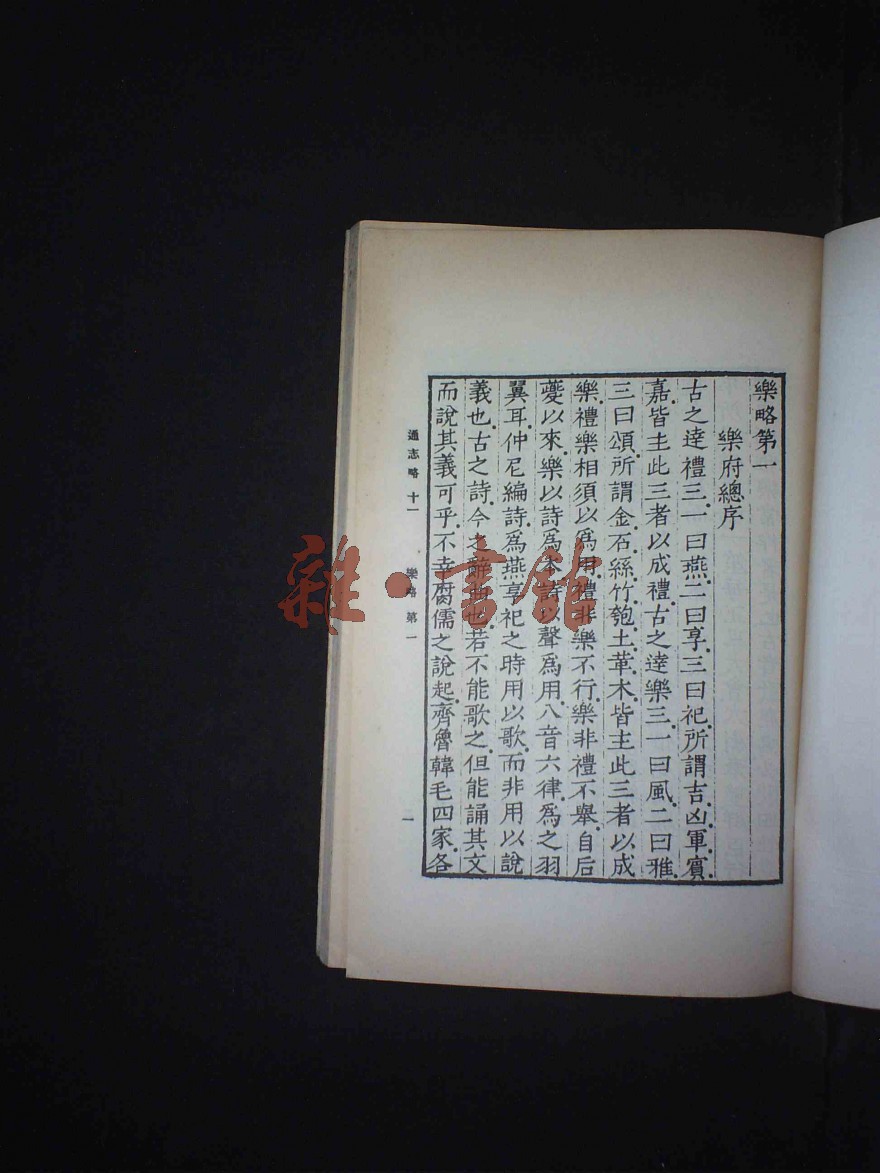 樂略第一
樂府總序
古之達禮三一曰燕二曰享三曰祀所謂吉凶軍賓
嘉皆主此三者以成禮古之達樂三一曰風二曰雅
三曰頌所謂金石絲竹匏土革木皆主此三者以成
樂禮樂相須以爲用禮非樂不行樂非禮不舉自后
夔以來樂以詩爲本詩以聲爲用八音六律爲之羽
翼耳仲尼編詩爲燕享祀之時用以歌而非用以說
義也古之詩今之辭曲也若不能歌之但能誦其文
而說其義可乎不幸腐儒之說起齊魯韓毛四家各
通志略 十一 樂略第一 一
雜·書館